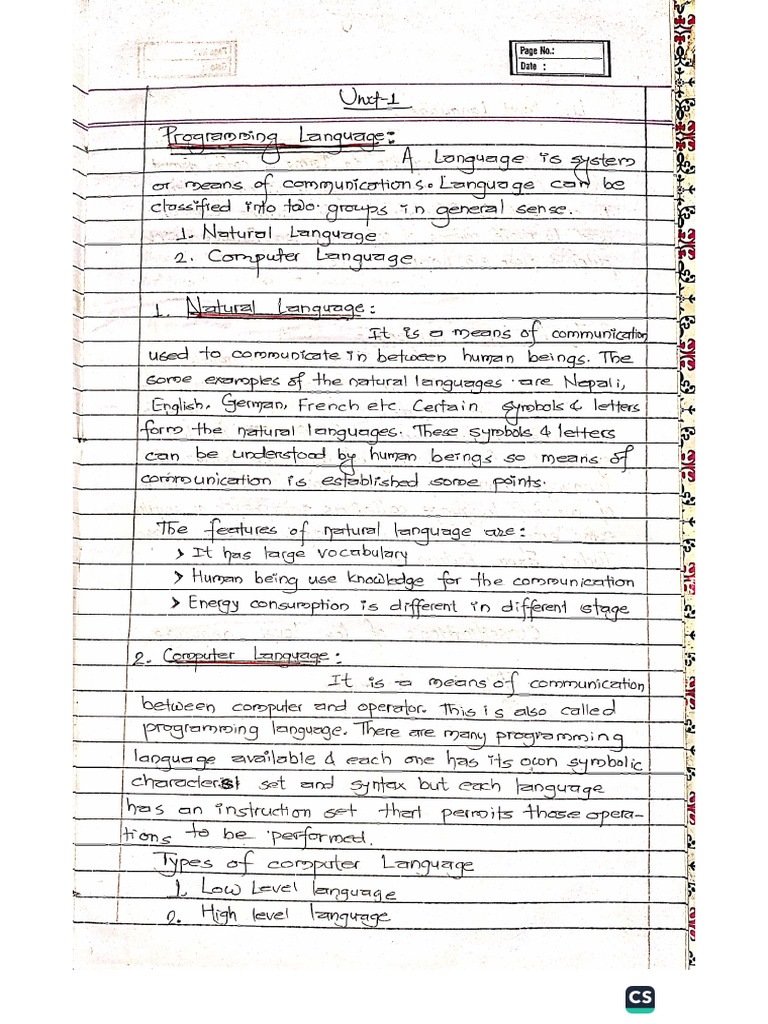 Page No.:
Date :
Unit-1
Programming Language:
A Language is system
or means of communications. Language can be
classified into two groups in general sense.
1. Natural Language
2. Computer Language
1. Natural Language:
It is a means of communication
used to communicate in between human beings. The
some examples of the natural languages are Nepali,
English, German, French etc. Certain symbols & letters
form the natural languages. These symbols & letters
can be understood by human beings so means of
communication is established some points.
The features of natural language are:
> It has large vocabulary
> Human being use knowledge for the communication
> Energy consumption is different in different stage
2. Computer Language:
It is a means of communication
between computer and operator. This is also called
programming language. There are many programming
language available & each one has its own symbolic
character set and syntax but each language
has an instruction set that permits those opera-
tions to be performed.
Types of computer Language
1. Low Level language
2. High level language
CS